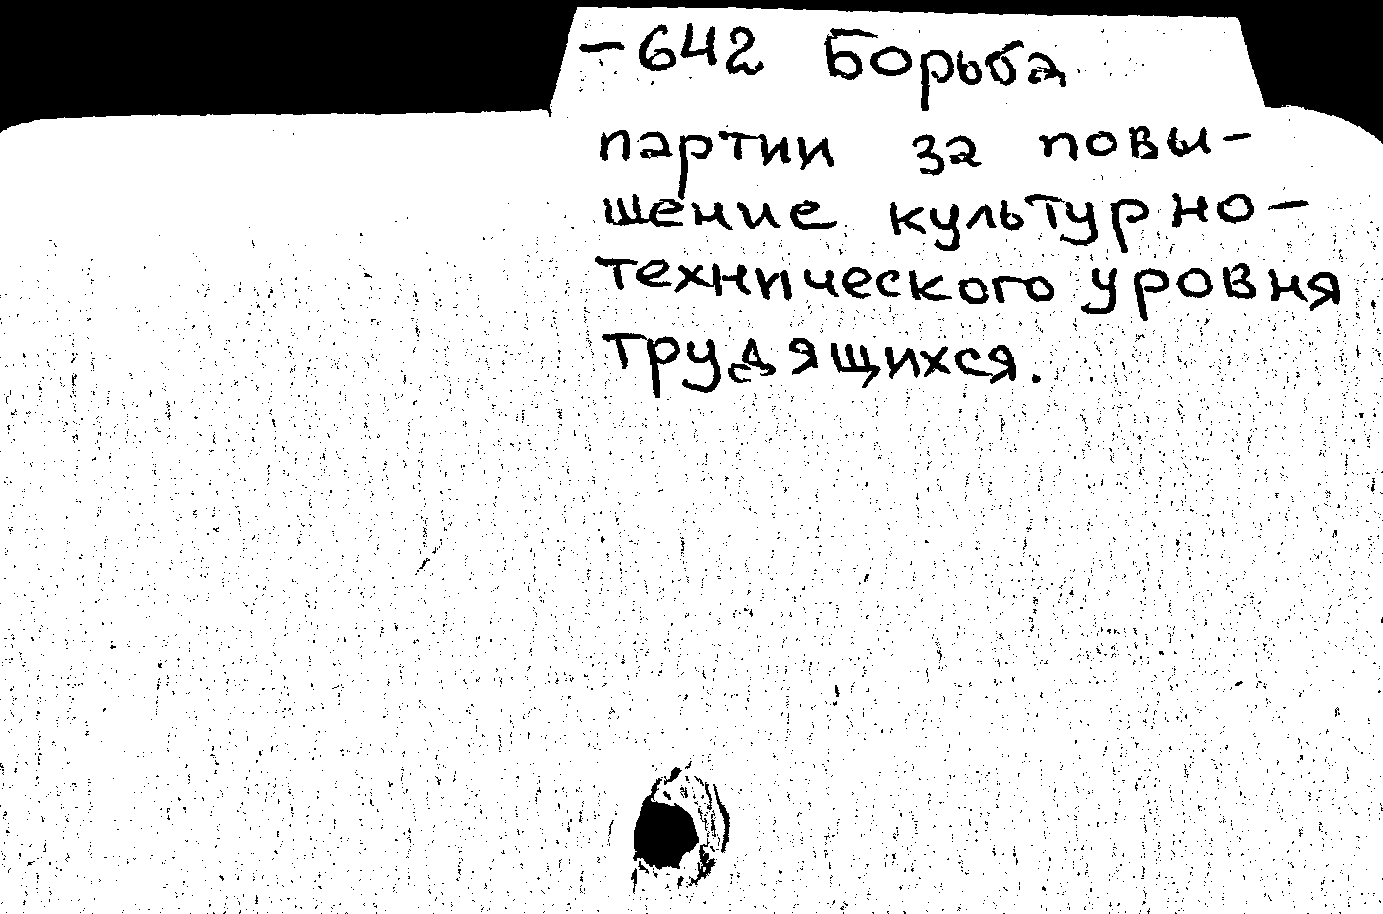 -642 Борьба
партии за повы-
шение культурно-
технического уровня
трудящихся.